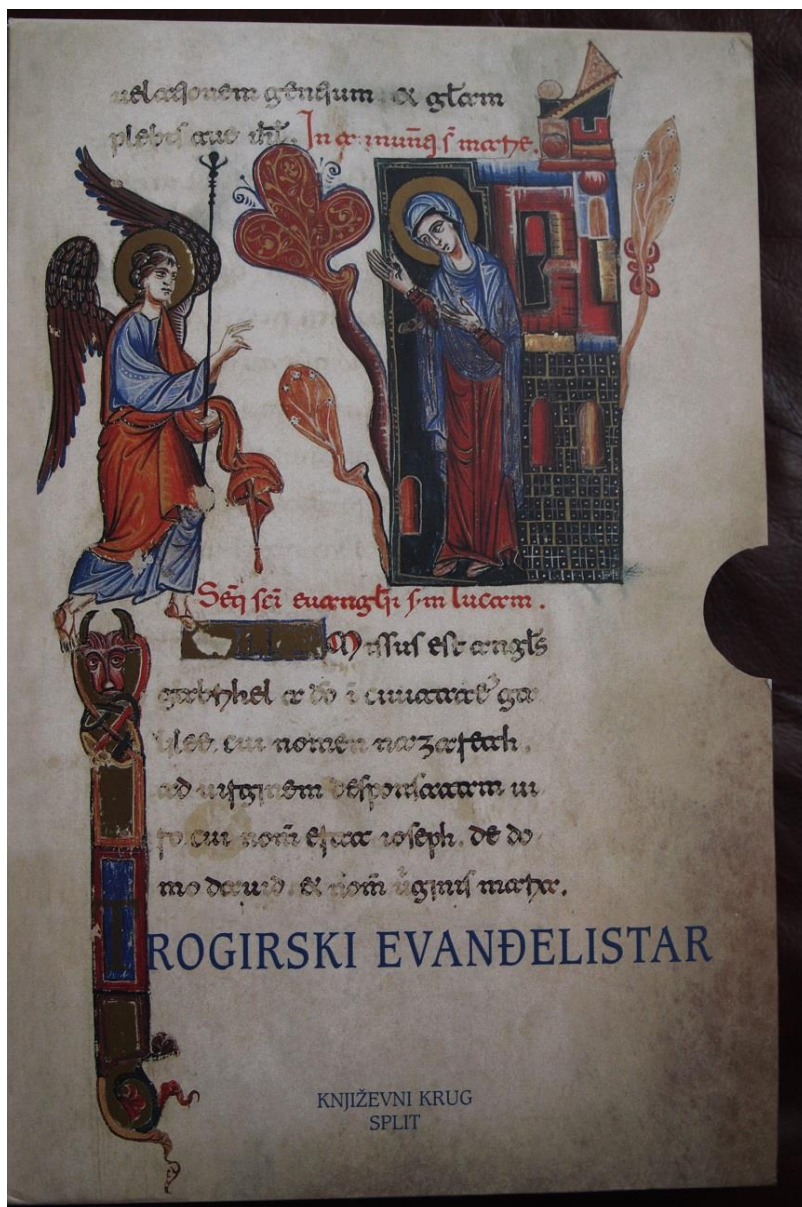 uelationem gentium & gl̃am
plebis tue iſrl̃. In ãnunt̃ s̃ marie.
Seq̃ sc̃i euangl̃ij s̃m lucam.
Missus est angl̃s
gabrihel a d̃o ĩ ciuitatẽ ga
lilee. cui nomen nazareth.
ad uirginem desponsatam ui
ro. cui nom̃ erat ioseph. de do
mo dauid. & nom̃ ũginis maria.
TROGIRSKI EVANĐELISTAR
KNJIŽEVNI KRUG
SPLIT